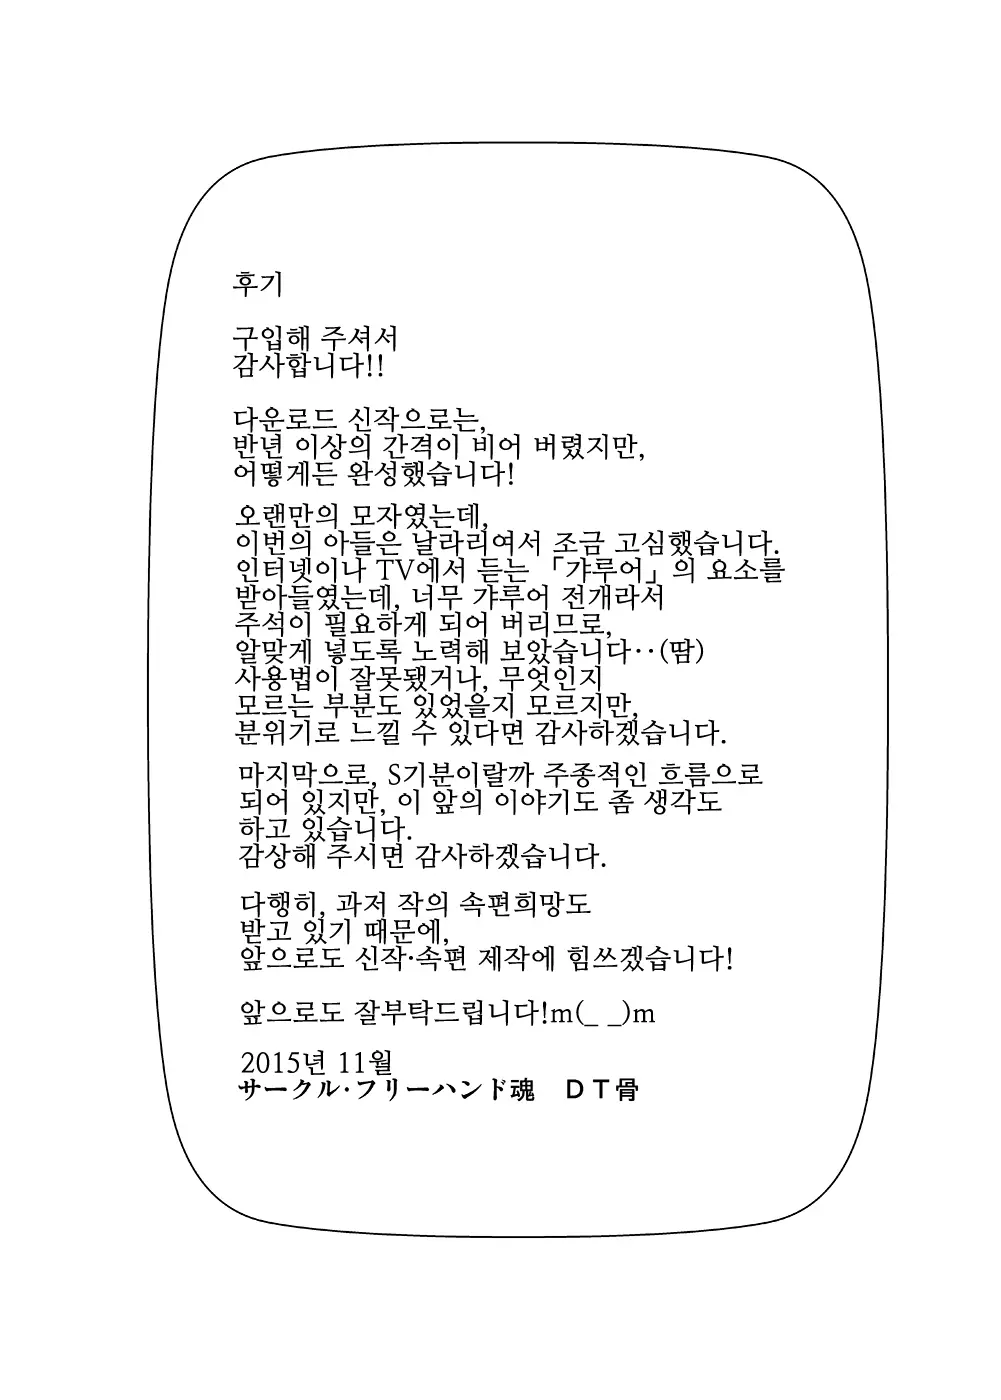 후기
구입해 주셔서
감사합니다!!
다운로드 신작으로는,
반년 이상의 간격이 비어 버렸지만,
어떻게든 완성했습니다!
오랜만의 모자였는데,
이번의 아들은 날라리여서 조금 고심했습니다.
인터넷이나 TV에서 듣는 「갸루어」의 요소를
받아들였는데, 너무 갸루어 전개라서
주석이 필요하게 되어 버리므로,
알맞게 넣도록 노력해 보았습니다‥(땀)
사용법이 잘못됐거나, 무엇인지
모르는 부분도 있었을지 모르지만,
분위기로 느낄 수 있다면 감사하겠습니다.
마지막으로, S기분이랄까 주종적인 흐름으로
되어 있지만, 이 앞의 이야기도 좀 생각도
하고 있습니다.
감상해 주시면 감사하겠습니다.
다행히, 과저 작의 속편희망도
받고 있기 때문에,
앞으로도 신작·속편 제작에 힘쓰겠습니다!
앞으로도 잘부탁드립니다!m(_ _)m
2015년 11월
サークル·フリーハンド魂　ＤＴ骨